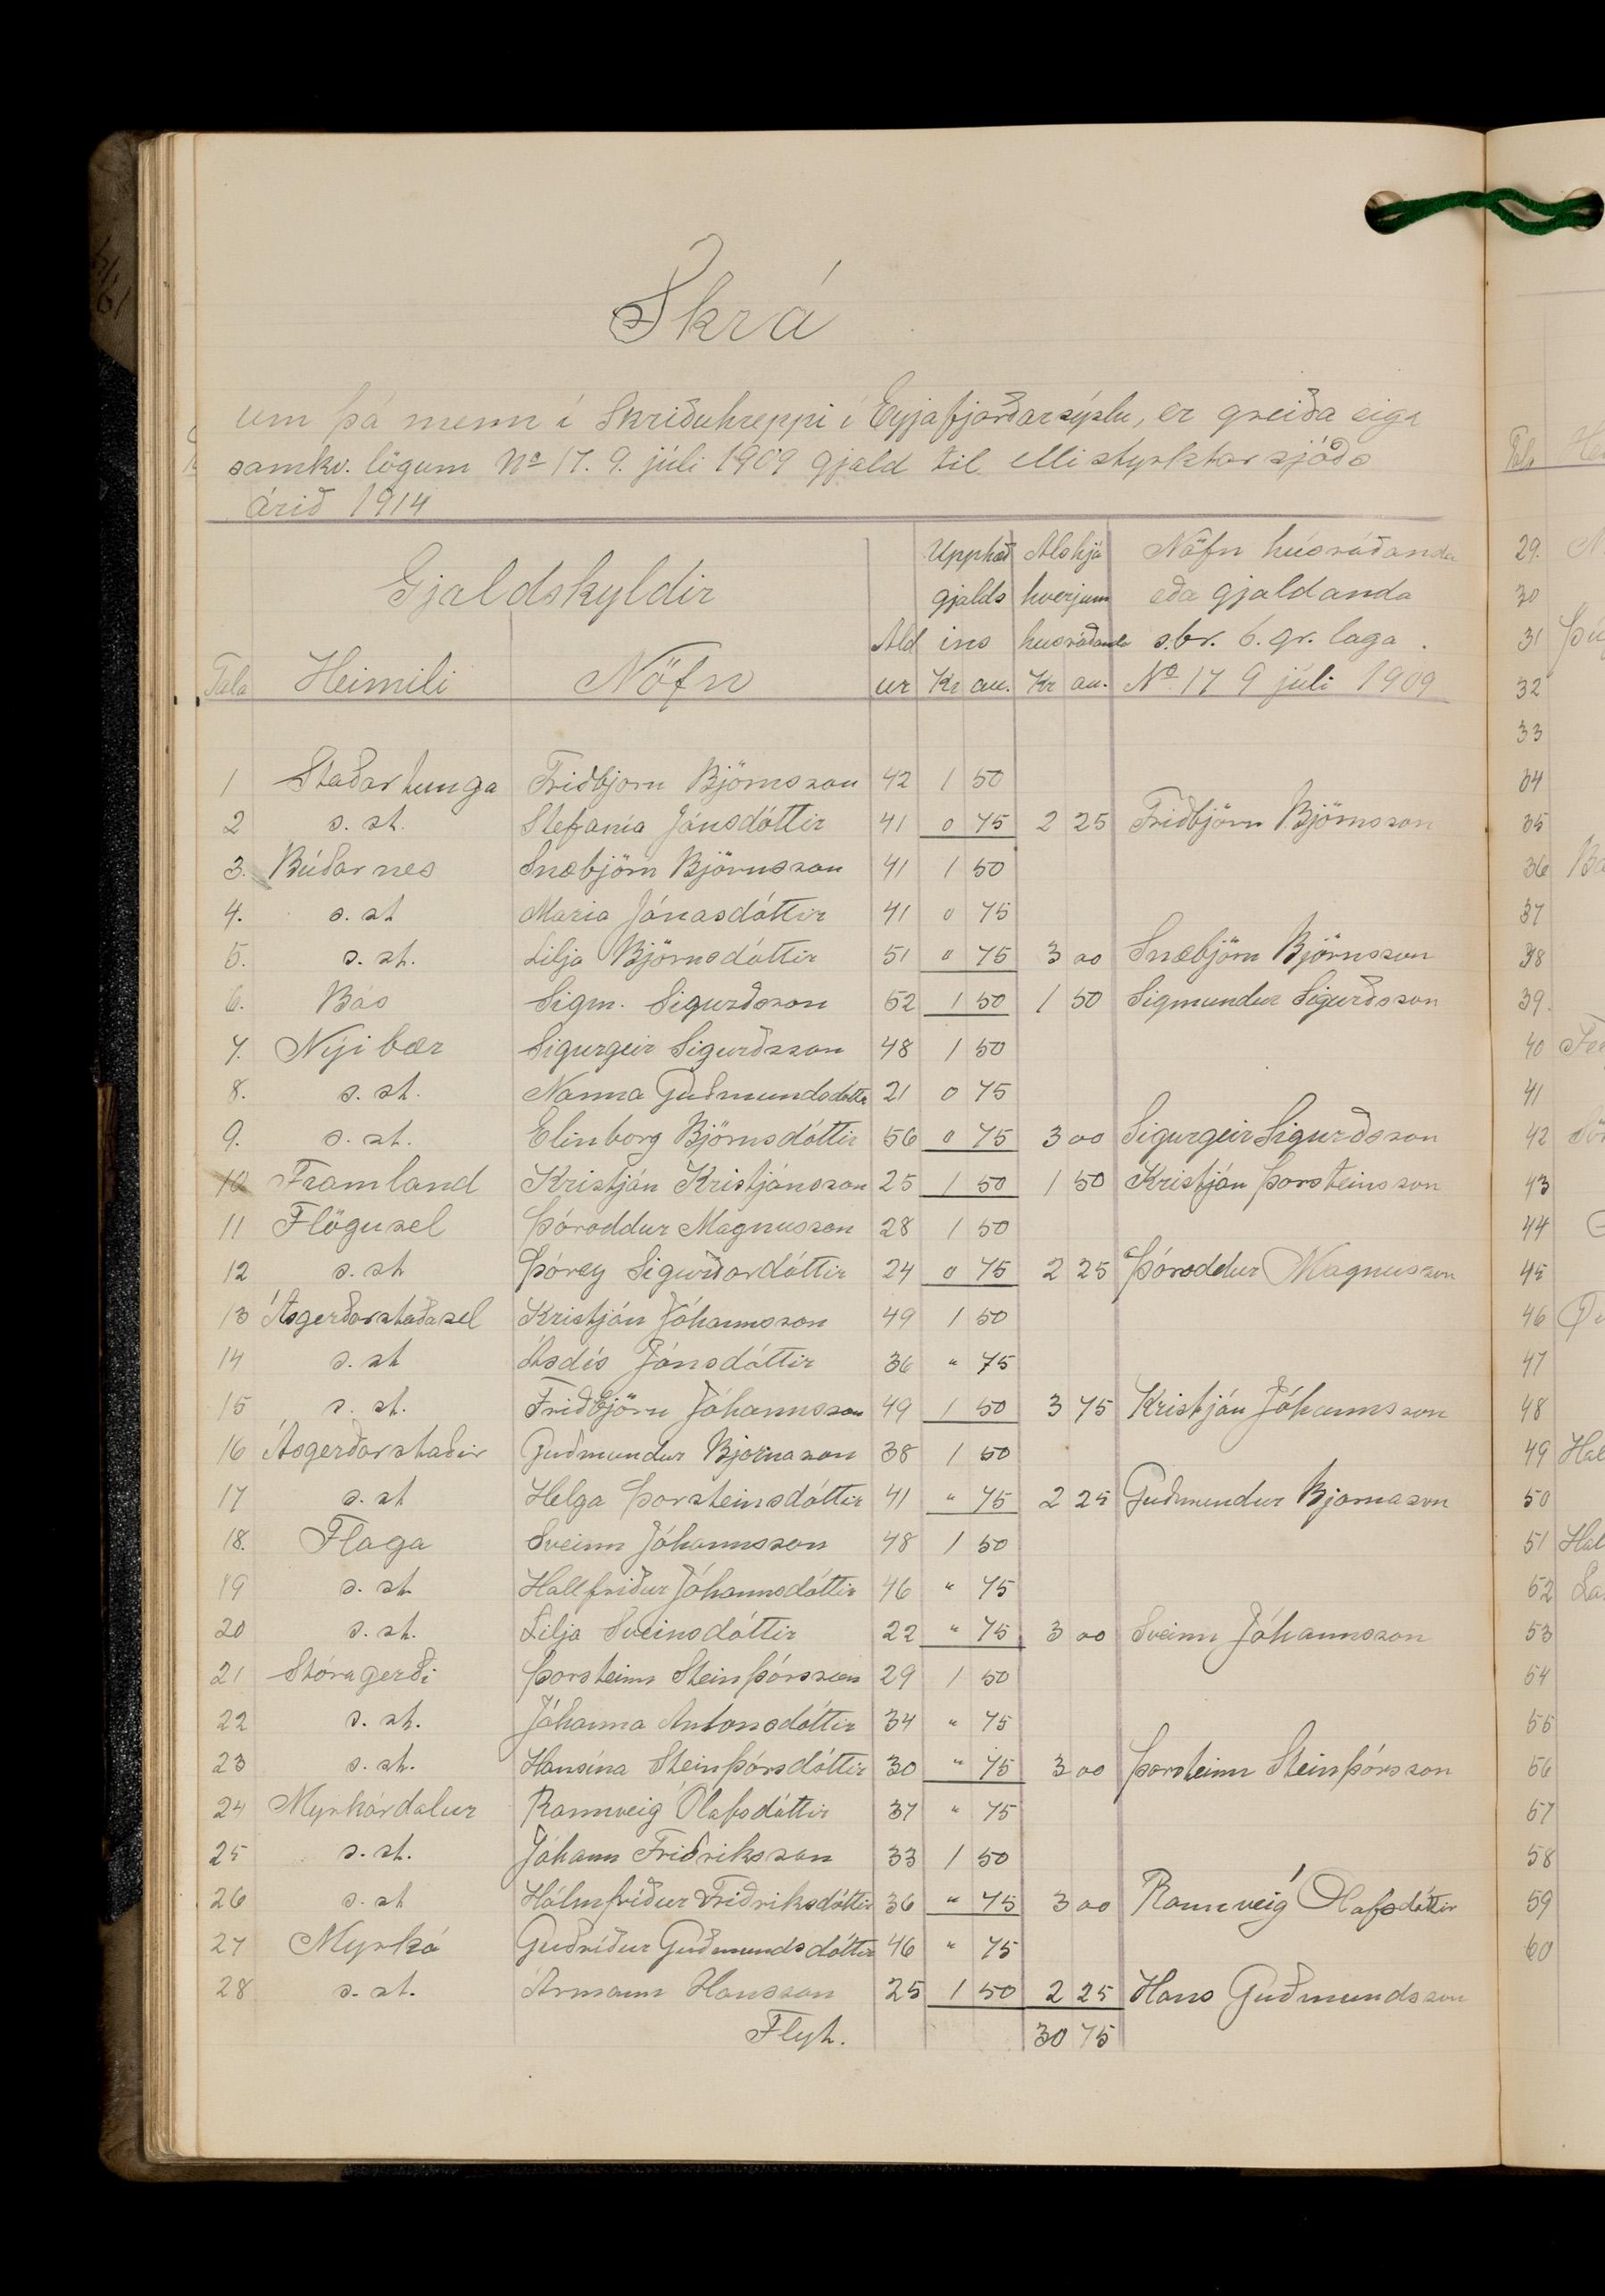 Skrá
um þá menn í Skriðuhreppi í Eyjafjarðarsýslu, er greiða eiga
samkv. lögum No 17. 9. júli 1909 gjald til ellistyrktarsjóðs
árið 1914
Gjaldskyldir
Tala Heimili Nöfn Ald ur Upphæð gjalds ins Kr au. Als hjá hverjum husráðanda Kr au. Nöfn húsráðanda eða gjaldanda s.br. 6. gr. laga No 17 9 júli 1909
1 Staðartunga Friðbjorn Björnsson 42 1 50
2 s. st. Stefanía Jónsdóttir 41 0 75 2 25 Friðbjörn Björnsson
3. Búðarnes Snæbjörn Björnsson 41 1 50
4. s. st Maria Jónasdóttir 41 0 75
5. s. st. Lilja Björnsdóttir 51 0 75 3 00 Snæbjörn Björnsson
6. Bás Sigm. Sigurðsson 52 1 50 1 50 Sigmundur Sigurðsson
7. Nýibær Sigurgeir Sigurðsson 48 1 50
8. s. st. Nanna Guðmundsdóttir 21 0 75
9. s. st. Elinborg Björnsdóttir 56 0 75 3 00 Sigurgeir Sigurðsson
10 Framland Kristján Kristjánsson 25 1 50 1 50 Kristján Þorsteinsson
11 Flögusel Þóroddur Magnusson 28 1 50
12 s. st Þórey Sigurðardóttir 24 0 75 2 25 Þóroddur Magnusson
13 Ásgerðarstaðasel Kristján Jóhannsson 49 1 50
14 s. st Ásdís Jónsdóttir 36 " 75
15 s. st. Friðbjörn Jóhannsson 49 1 50 3 75 Kristján Jóhannsson
16 Ásgerðarstaðir Guðmundur Bjarnason 38 1 50
17 s. st Helga Þorsteinsdóttir 41 " 75 2 25 Guðmundur Bjarnason
18. Flaga Sveinn Jóhannsson 48 1 50
19 s. st Hallfriður Jóhannsdóttir 46 " 75
20 s. st. Lilja Sveinsdóttir 22 " 75 3 00 Sveinn Jóhannsson
21 Stóragerði Þorsteinn Steinþórsson 29 1 50
22 s. st. Jóhanna Antonsdóttir 34 " 75
23 s. st. Hansína Steinþórsdóttir 30 " 75 3 00 Þorsteinn Steinþórsson
24 Myrkárdalur Rannveig Ólafsdóttir 37 " 75
25 s. st. Jóhann Friðriksson 33 1 50
26 s. st Hólmfríður Friðriksdóttir 36 " 75 3 00 Rannveig Ólafsdóttir
27 Myrká Guðríður Guðmundsdóttir 46 " 75
28 s. st. Ármann Hansson 25 1 50 2 25 Hans Guðmundsson
Flyt. 30 75
29.
30
31
32
33
34
35
36
37
38
39.
40
41
42
43
44
45
46
47
48
49
50
51
52
53
54
55
56
57
58
59
60